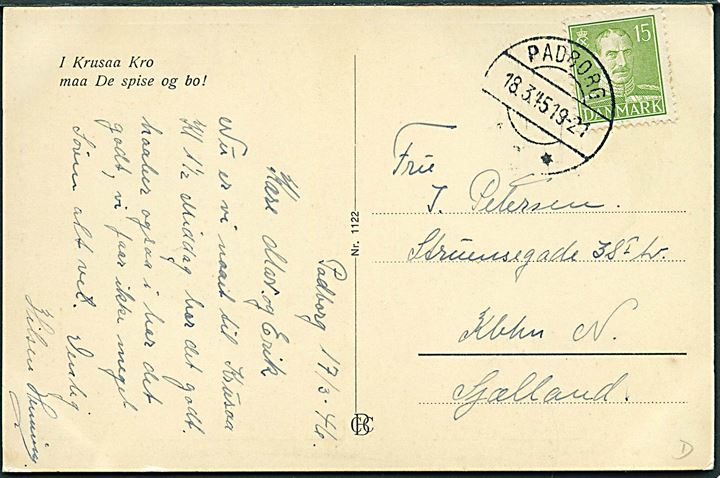 I Krusaa Kro
maa De spise og bo!
Padborg 17/3-46.
Kære Mor og Erik
Nu er vi naait til Krusaa
Kl 1½ Middag har det godt.
haaber ogsaa i har det
godt, vi faar ikke meget
Søvn alt vel.
Hilsen Henning.
Nr. 1122
PADBORG
18.3.45 19-21
15
DANMARK
Frue
J. Petersen.
Struensegade 38
Kbhn N.
Sjælland.
D